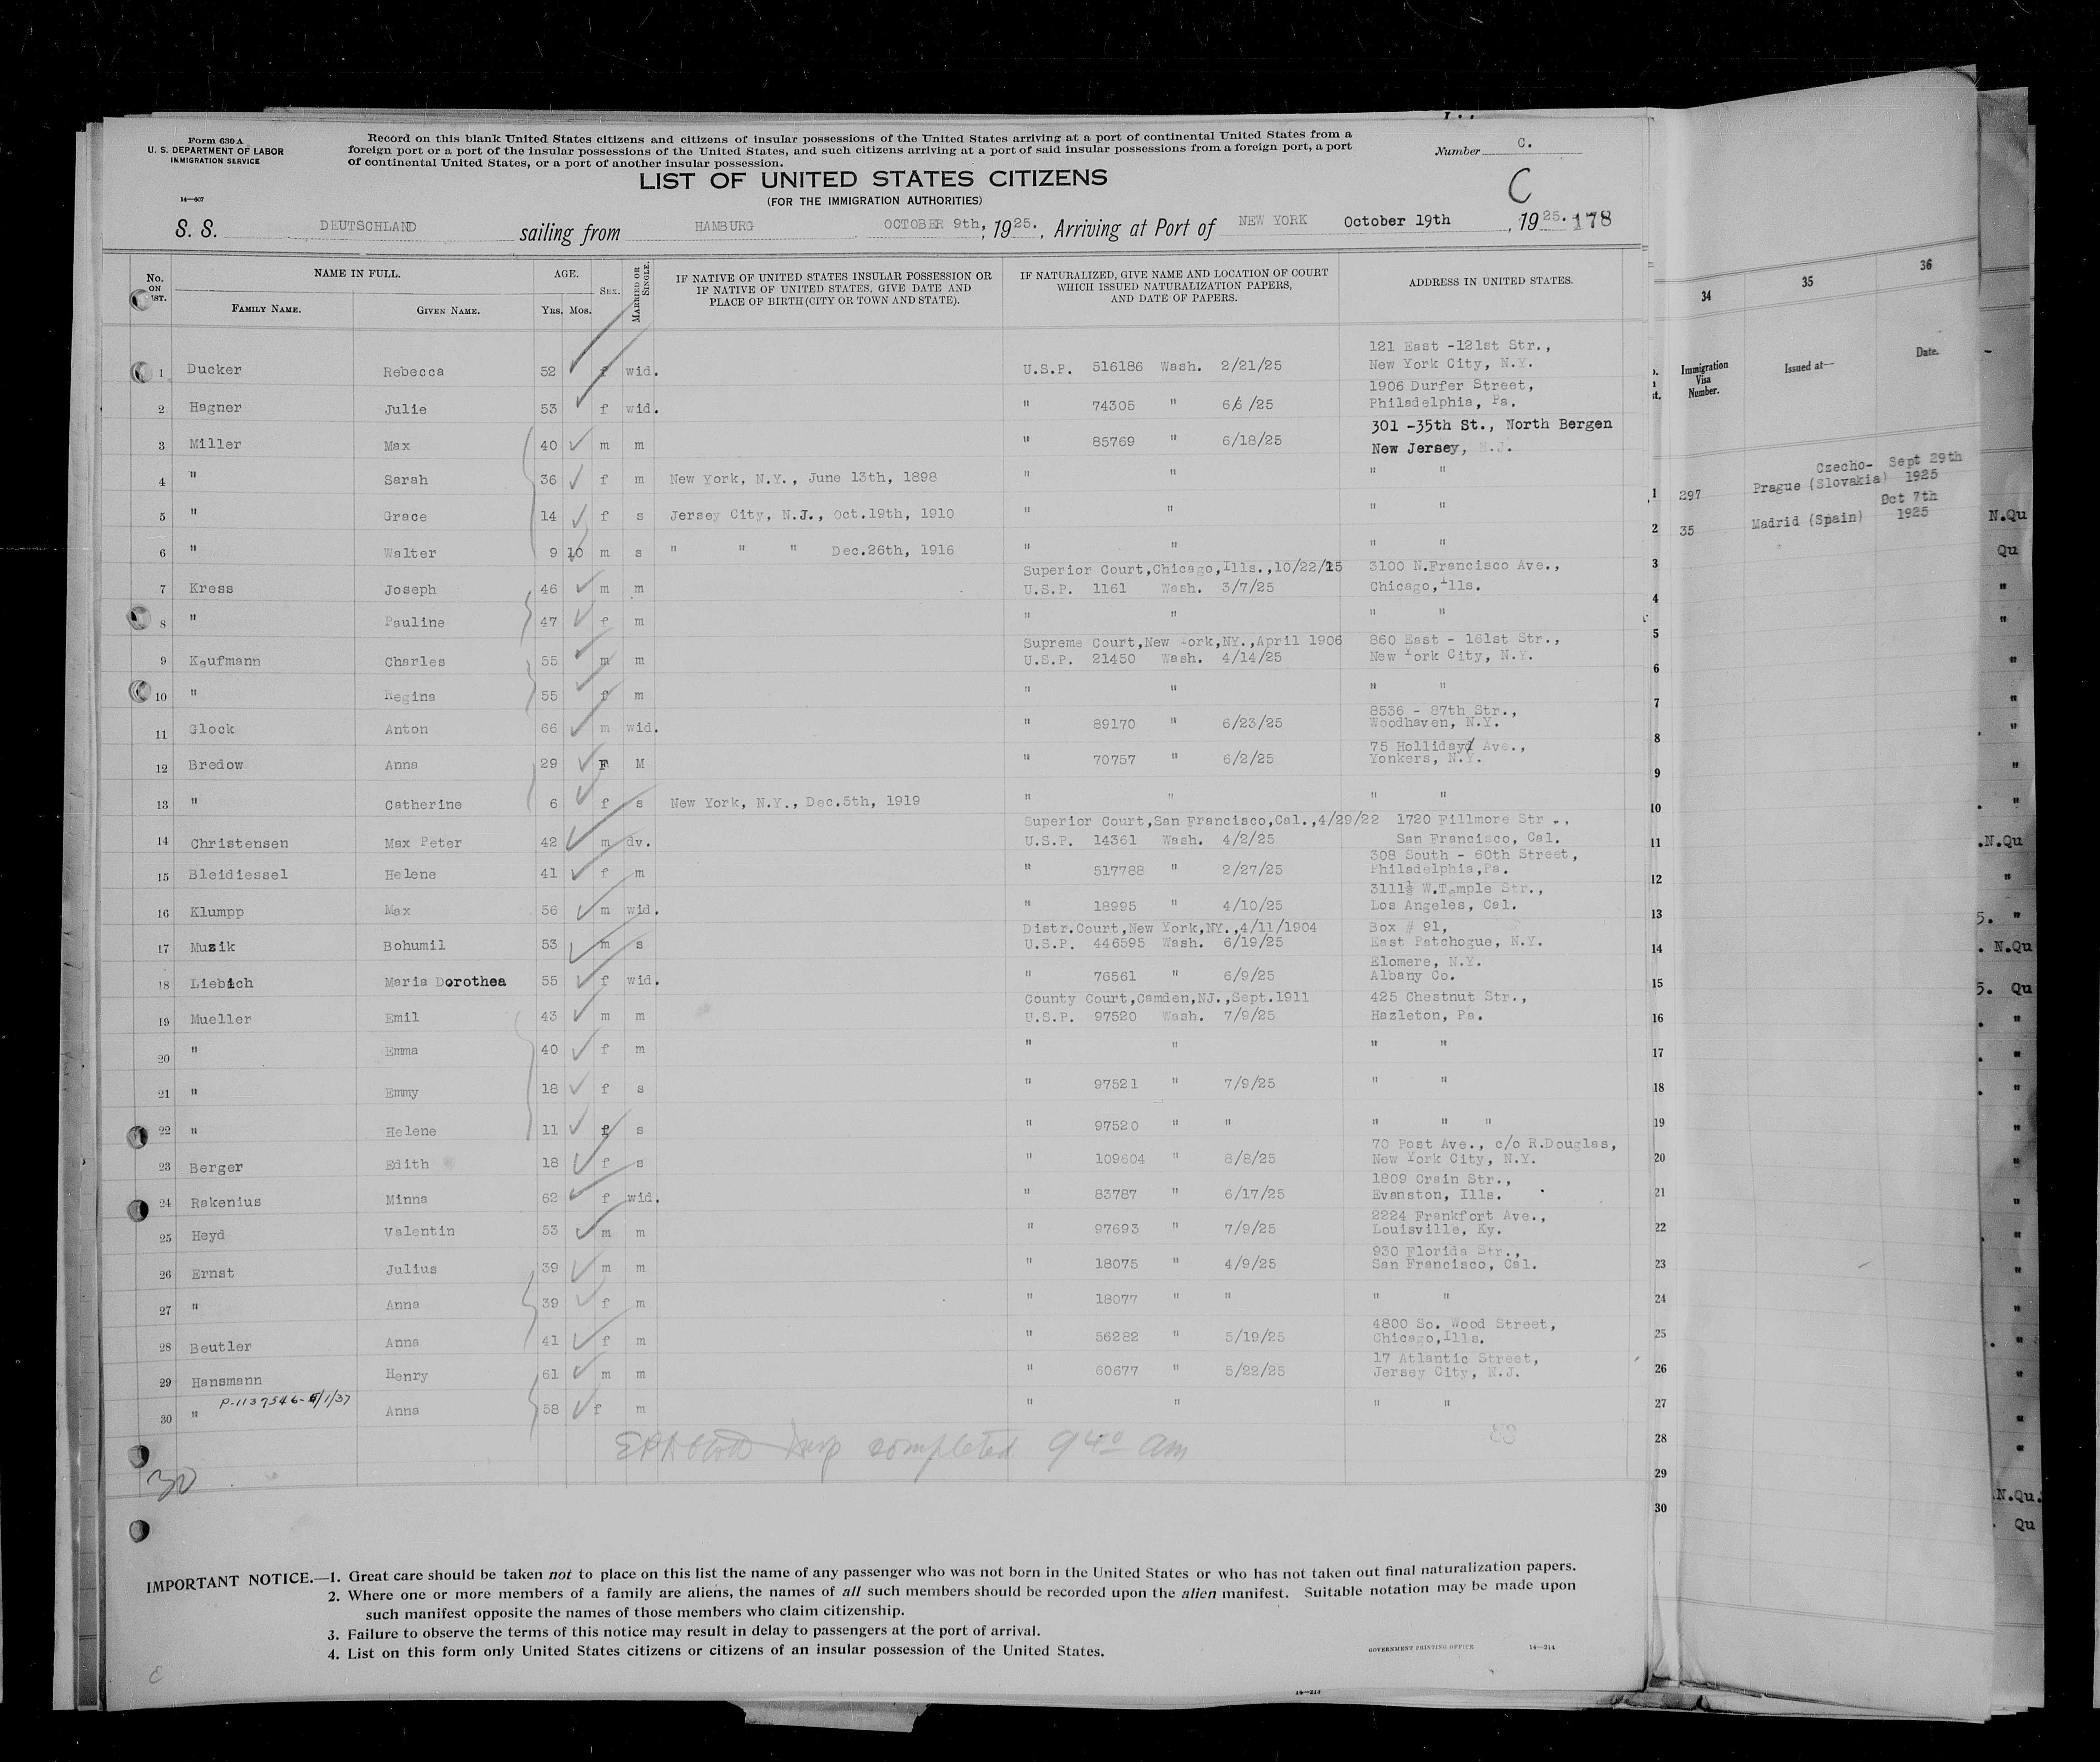 Form 630 A
U. S. DEPARTMENT OF LABOR
IMMIGRATION SERVICE
14—607
Record on this blank United States citizens and citizens of insular possessions of the United States arriving at a port of continental United States from a
foreign port or a port of the insular possessions of the United States, and such citizens arriving at a port of said insular possessions from a foreign port, a port
of continental United States, or a port of another insular possession.
Number C.
LIST OF UNITED STATES CITIZENS
(FOR THE IMMIGRATION AUTHORITIES)
C
S. S. DEUTSCHLAND sailing from HAMBURG OCTOBER 9th, 1925., Arriving at Port of NEW YORK October 19th, 1925. 178
No. ON LIST. NAME IN FULL. AGE. SEX. MARRIED OR SINGLE. IF NATIVE OF UNITED STATES INSULAR POSSESSION OR IF NATIVE OF UNITED STATES, GIVE DATE AND PLACE OF BIRTH (CITY OR TOWN AND STATE). IF NATURALIZED, GIVE NAME AND LOCATION OF COURT WHICH ISSUED NATURALIZATION PAPERS, AND DATE OF PAPERS. ADDRESS IN UNITED STATES.
FAMILY NAME. GIVEN NAME. YRS. MOS.
121 East -121st Str.,
1 Ducker Rebecca 52 f wid. U.S.P. 516186 Wash. 2/21/25 New York City, N.Y.
1906 Durfer Street,
2 Hagner Julie 53 f wid. " 74305 " 6/6 /25 Philadelphia, Pa.
301 -35th St., North Bergen
3 Miller Max 40 m m " 85769 " 6/18/25 New Jersey, N.J.
4 " Sarah 36 f m New York, N.Y., June 13th, 1898 " " " "
5 " Grace 14 f s Jersey City, N.J., Oct.19th, 1910 " " " "
6 " Walter 9 10 m s " " " Dec.26th, 1916 " " " "
Superior Court,Chicago,Ills.,10/22/15 3100 N.Francisco Ave.,
7 Kress Joseph 46 m m U.S.P. 1161 Wash. 3/7/25 Chicago,Ills.
8 " Pauline 47 f m " " " "
Supreme Court,New York,NY.,April 1906 860 East - 161st Str.,
9 Kaufmann Charles 55 m m U.S.P. 21450 Wash. 4/14/25 New York City, N.Y.
10 " Regina 55 f m " " " "
8536 - 87th Str.,
11 Glock Anton 66 m wid. " 89170 " 6/23/25 Woodhaven, N.Y.
75 Holliday Ave.,
12 Bredow Anna 29 F M " 70757 " 6/2/25 Yonkers, N.Y.
13 " Catherine 6 f s New York, N.Y., Dec.5th, 1919 " " " "
Superior Court,San Francisco,Cal.,4/29/22 1720 Fillmore Str.,
14 Christensen Max Peter 42 m dv. U.S.P. 14361 Wash. 4/2/25 San Francisco, Cal.
308 South - 60th Street,
15 Bleidiessel Helene 41 f m " 517788 " 2/27/25 Philadelphia,Pa.
3111½ W.Temple Str.,
16 Klumpp Max 56 m wid. " 18995 " 4/10/25 Los Angeles, Cal.
Distr.Court,New York,NY.,4/11/1904 Box # 91,
17 Muzik Bohumil 53 m s U.S.P. 446595 Wash. 6/19/25 East Patchogue, N.Y.
Elomere, N.Y.
18 Liebich Maria Dorothea 55 f wid. " 76561 " 6/9/25 Albany Co.
County Court,Camden,NJ.,Sept.1911 425 Chestnut Str.,
19 Mueller Emil 43 m m U.S.P. 97520 Wash. 7/9/25 Hazleton, Pa.
20 " Emma 40 f m " " " "
21 " Emmy 18 f s " 97521 " 7/9/25 " "
22 " Helene 11 f s " 97520 " " " " "
70 Post Ave., c/o R.Douglas,
23 Berger Edith 18 f s " 109604 " 8/8/25 New York City, N.Y.
1809 Crain Str.,
24 Rakenius Minna 62 f wid. " 83787 " 6/17/25 Evanston, Ills.
2224 Frankfort Ave.,
25 Heyd Valentin 53 m m " 97693 " 7/9/25 Louisville, Ky.
930 Florida Str.,
26 Ernst Julius 39 m m " 18075 " 4/9/25 San Francisco, Cal.
27 " Anna 39 f m " 18077 " " " "
4800 So. Wood Street,
28 Beutler Anna 41 f m " 56282 " 5/19/25 Chicago,Ills.
17 Atlantic Street,
29 Hansmann Henry 61 m m " 60677 " 5/22/25 Jersey City, N.J.
P-1137546-5/1/37
30 " Anna 58 f m " " " "
completed 9 40 am
30
IMPORTANT NOTICE.—1. Great care should be taken not to place on this list the name of any passenger who was not born in the United States or who has not taken out final naturalization papers.
2. Where one or more members of a family are aliens, the names of all such members should be recorded upon the alien manifest. Suitable notation may be made upon
such manifest opposite the names of those members who claim citizenship.
3. Failure to observe the terms of this notice may result in delay to passengers at the port of arrival.
4. List on this form only United States citizens or citizens of an insular possession of the United States.
GOVERNMENT PRINTING OFFICE 14—214
14—213
34 35 36
Immigration Visa Number. Issued at— Date.
Czecho- Sept 29th
1 297 Prague (Slovakia) 1925
Oct 7th
2 35 Madrid (Spain) 1925
3
4
5
6
7
8
9
10
11
12
13
14
15
16
17
18
19
20
21
22
23
24
25
26
27
28
29
30
N.Qu
Qu
"
"
"
"
"
"
"
.N.Qu
"
5. "
. N.Qu
5. Qu
"
"
"
"
"
"
"
"
"
"
"
"
"
N.Qu.
Qu